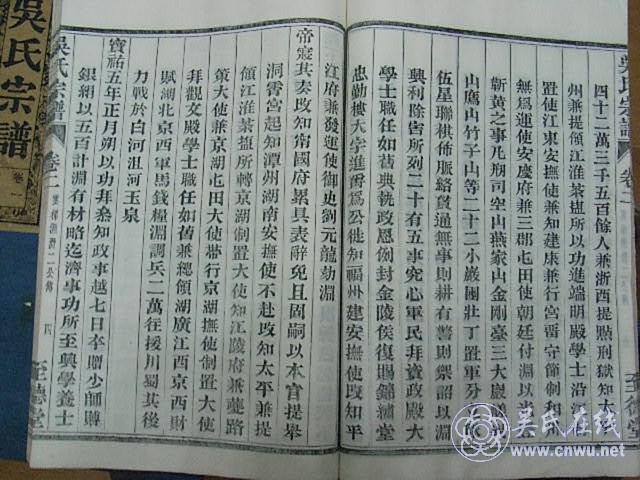 吳氏宗譜
卷二
四十二萬三千五百餘人兼浙西提㸃刑獄知太
州兼提領江淮茶塩所以功進端明殿學士沿江
置使江東安撫使兼知建康兼行宮留守節制和
無爲運使安慶府兼三郡屯田使朝廷付淵以光
蘄黃之事凡剏司空山燕家山金剛臺三大巖
山鷹山竹子山等二十二小巖團壯丁置軍分立
伍星聯棋佈脈絡貫通無事則耕有警則禦詔以淵
興利除害所列二十有五事究心軍民拜資政殿大
學士職任如昔與執政恩例封金陵侯復賜錦繡堂
忠勤樓大字進爵爲公徙知福州建安撫使改知平
江府兼發運使御史劉元龍劾淵
帝寢其奏改知甯國府累具表辭免且固嗣以本官提舉
洞霄宮起知潭州湖南安撫使不赴改知太平兼提
領江淮茶塩所轉京湖制置大使知江陵府兼夔路
策大使兼京湖屯田大使帶行京湖撫使制置大使
拜觀文殿學士職任如舊兼總領湖廣江西京西財
賦湖北京西軍馬錢糧淵調兵二萬往援川蜀其後
力戰於白河沮河玉泉
寶祐五年正月朔以功拜叅知政事越七日卒贈少師賻
銀絹以五百計淵有材略迄濟事功所至興學養士
吳氏宗譜 卷二 淵二公傳 四 至德堂
吳氏宗譜
卷一
吴氏在线
www.cnwu.net